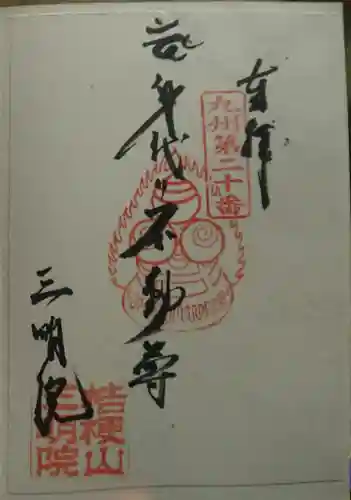 奉拝
九州第二十番
身代り不動尊
三明院
桔梗山
三明院